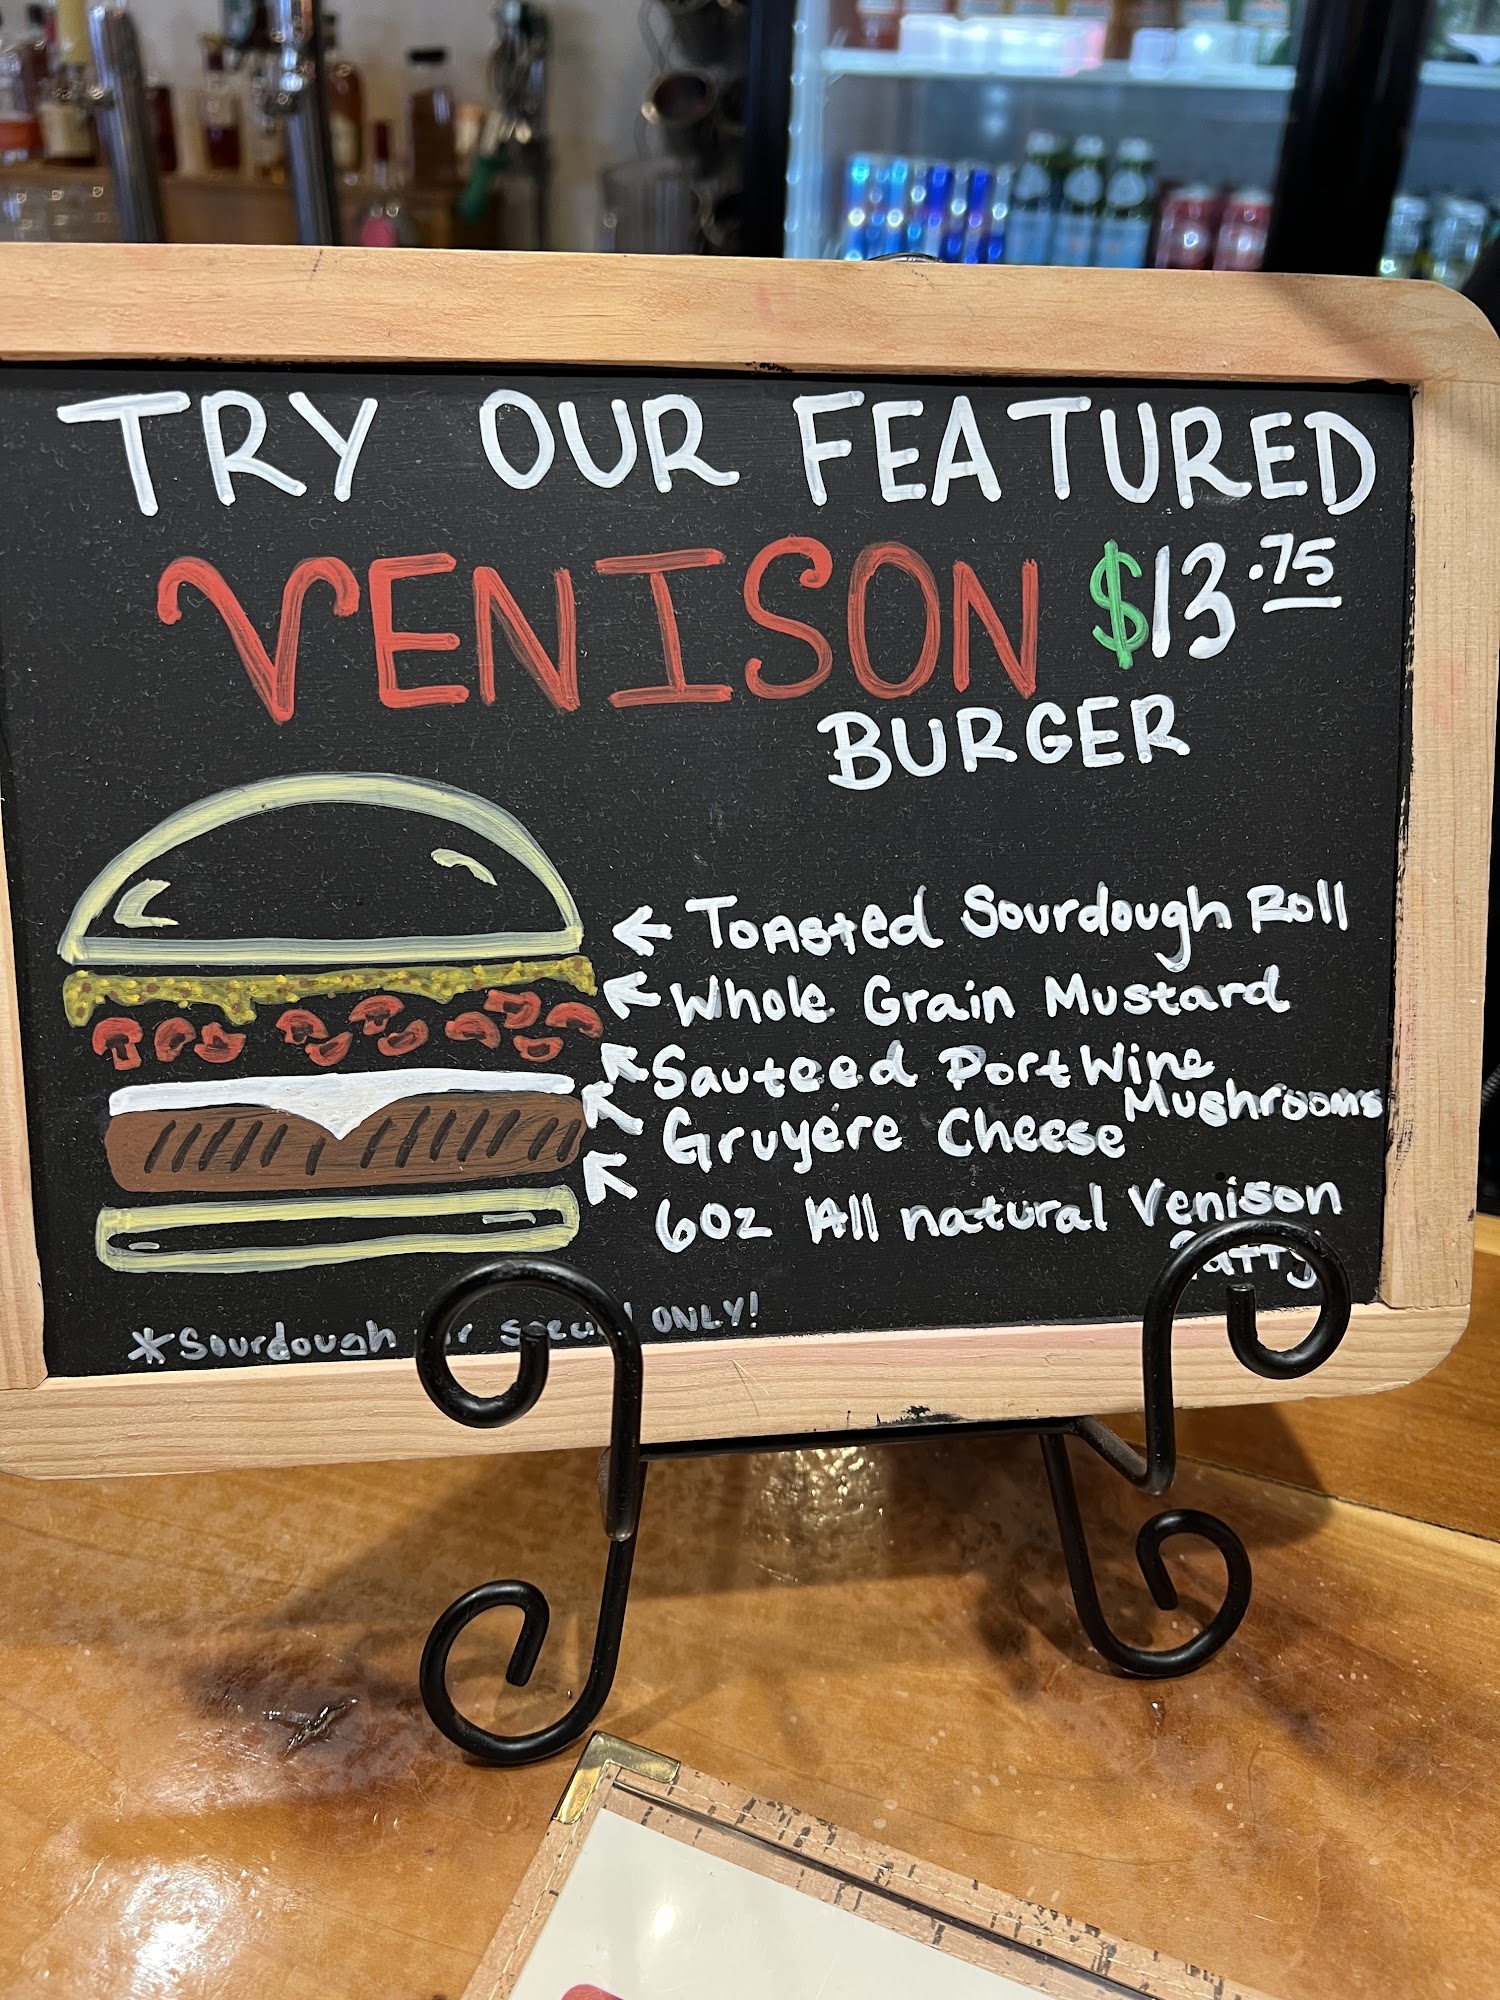 TRY OUR FEATURED
VENISON $13.75
BURGER
Toasted Sourdough Roll
Whole Grain Mustard
Sauteed Port Wine
Mushrooms
Gruyére Cheese
6oz All natural Venison
Patty
*Sourdough for special ONLY!